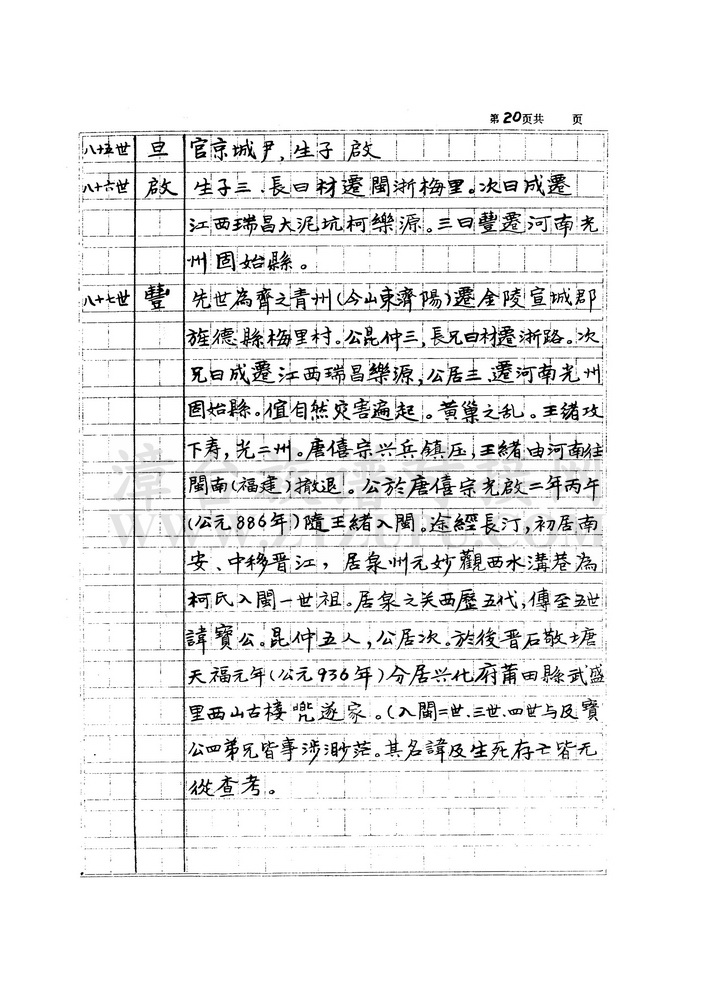 第20页共 页
八十五世 旦 官京城尹,生子 啟
八十六世 啟 生子三、長曰材遷閩浙梅里。次曰成遷
江西瑞昌大泥坑柯樂源。三曰豐遷河南光
州固始縣。
八十七世 豐 先世為齊之青州(今山東齊陽)遷金陵宣城郡
旌德縣梅里村。公昆仲三,長兄曰材遷浙路。次
兄曰成遷江西瑞昌樂源,公居三、遷河南光州
固始縣。值自然灾害遍起。黄巢之乱。王緒攻
下寿,光二州。唐僖宗兴兵镇压,王緒由河南往
閩南(福建)撤退。公於唐僖宗光啟二年丙午
(公元886年)隨王緒入閩。途經長汀,初居南
安、中移晋江,居泉州元妙觀西水溝巷為
柯氏入閩一世祖。居泉之关西歷五代,傳至五世
諱寶公。昆仲五人,公居次。於後晋石敬塘
天福元年(公元936年)分居兴化府莆田縣武盛
里西山古楼 遂家。(入閩二世.三世.四世与及寶
公四弟兄皆事涉渺茫。其名諱及生死存亡皆无
從查考。